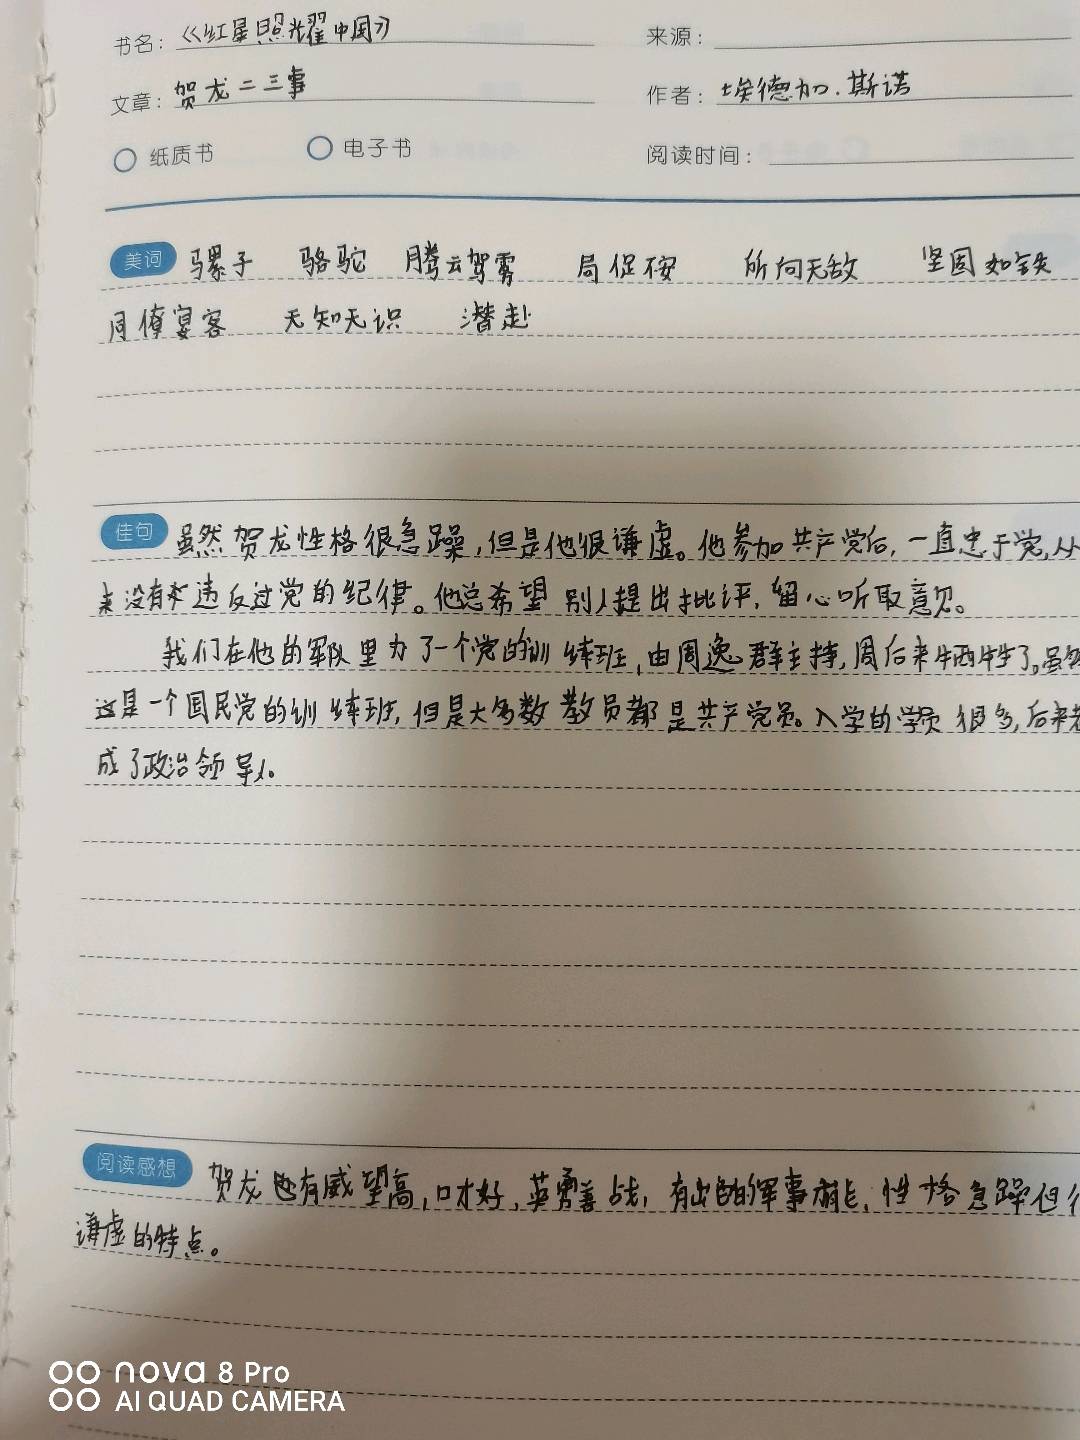 书名：《红星照耀中国》 来源：
文章：贺龙二三事 作者：埃德加.斯诺
纸质书 电子书 阅读时间：
美词 骡子 骆驼 腾云驾雾 局促不安 所向无敌 坚固如铁
同僚宴客 无知无识 潜赴
佳句 虽然贺龙性格很急躁，但是他很谦虚。他参加共产党后，一直忠于党，从
来没有违反过党的纪律。他总希望别人提出批评，留心听取意见。
我们在他的军队里办了一个党的训练班，由周逸群主持，周后来牺牲了。虽然
这是一个国民党的训练班，但是大多数教员都是共产党员。入学的学员很多，后来
成了政治领导人。
阅读感想 贺龙有威望高，口才好，英勇善战，有出色的军事才能，性格急躁但
谦虚的特点。
nova 8 Pro
AI QUAD CAMERA